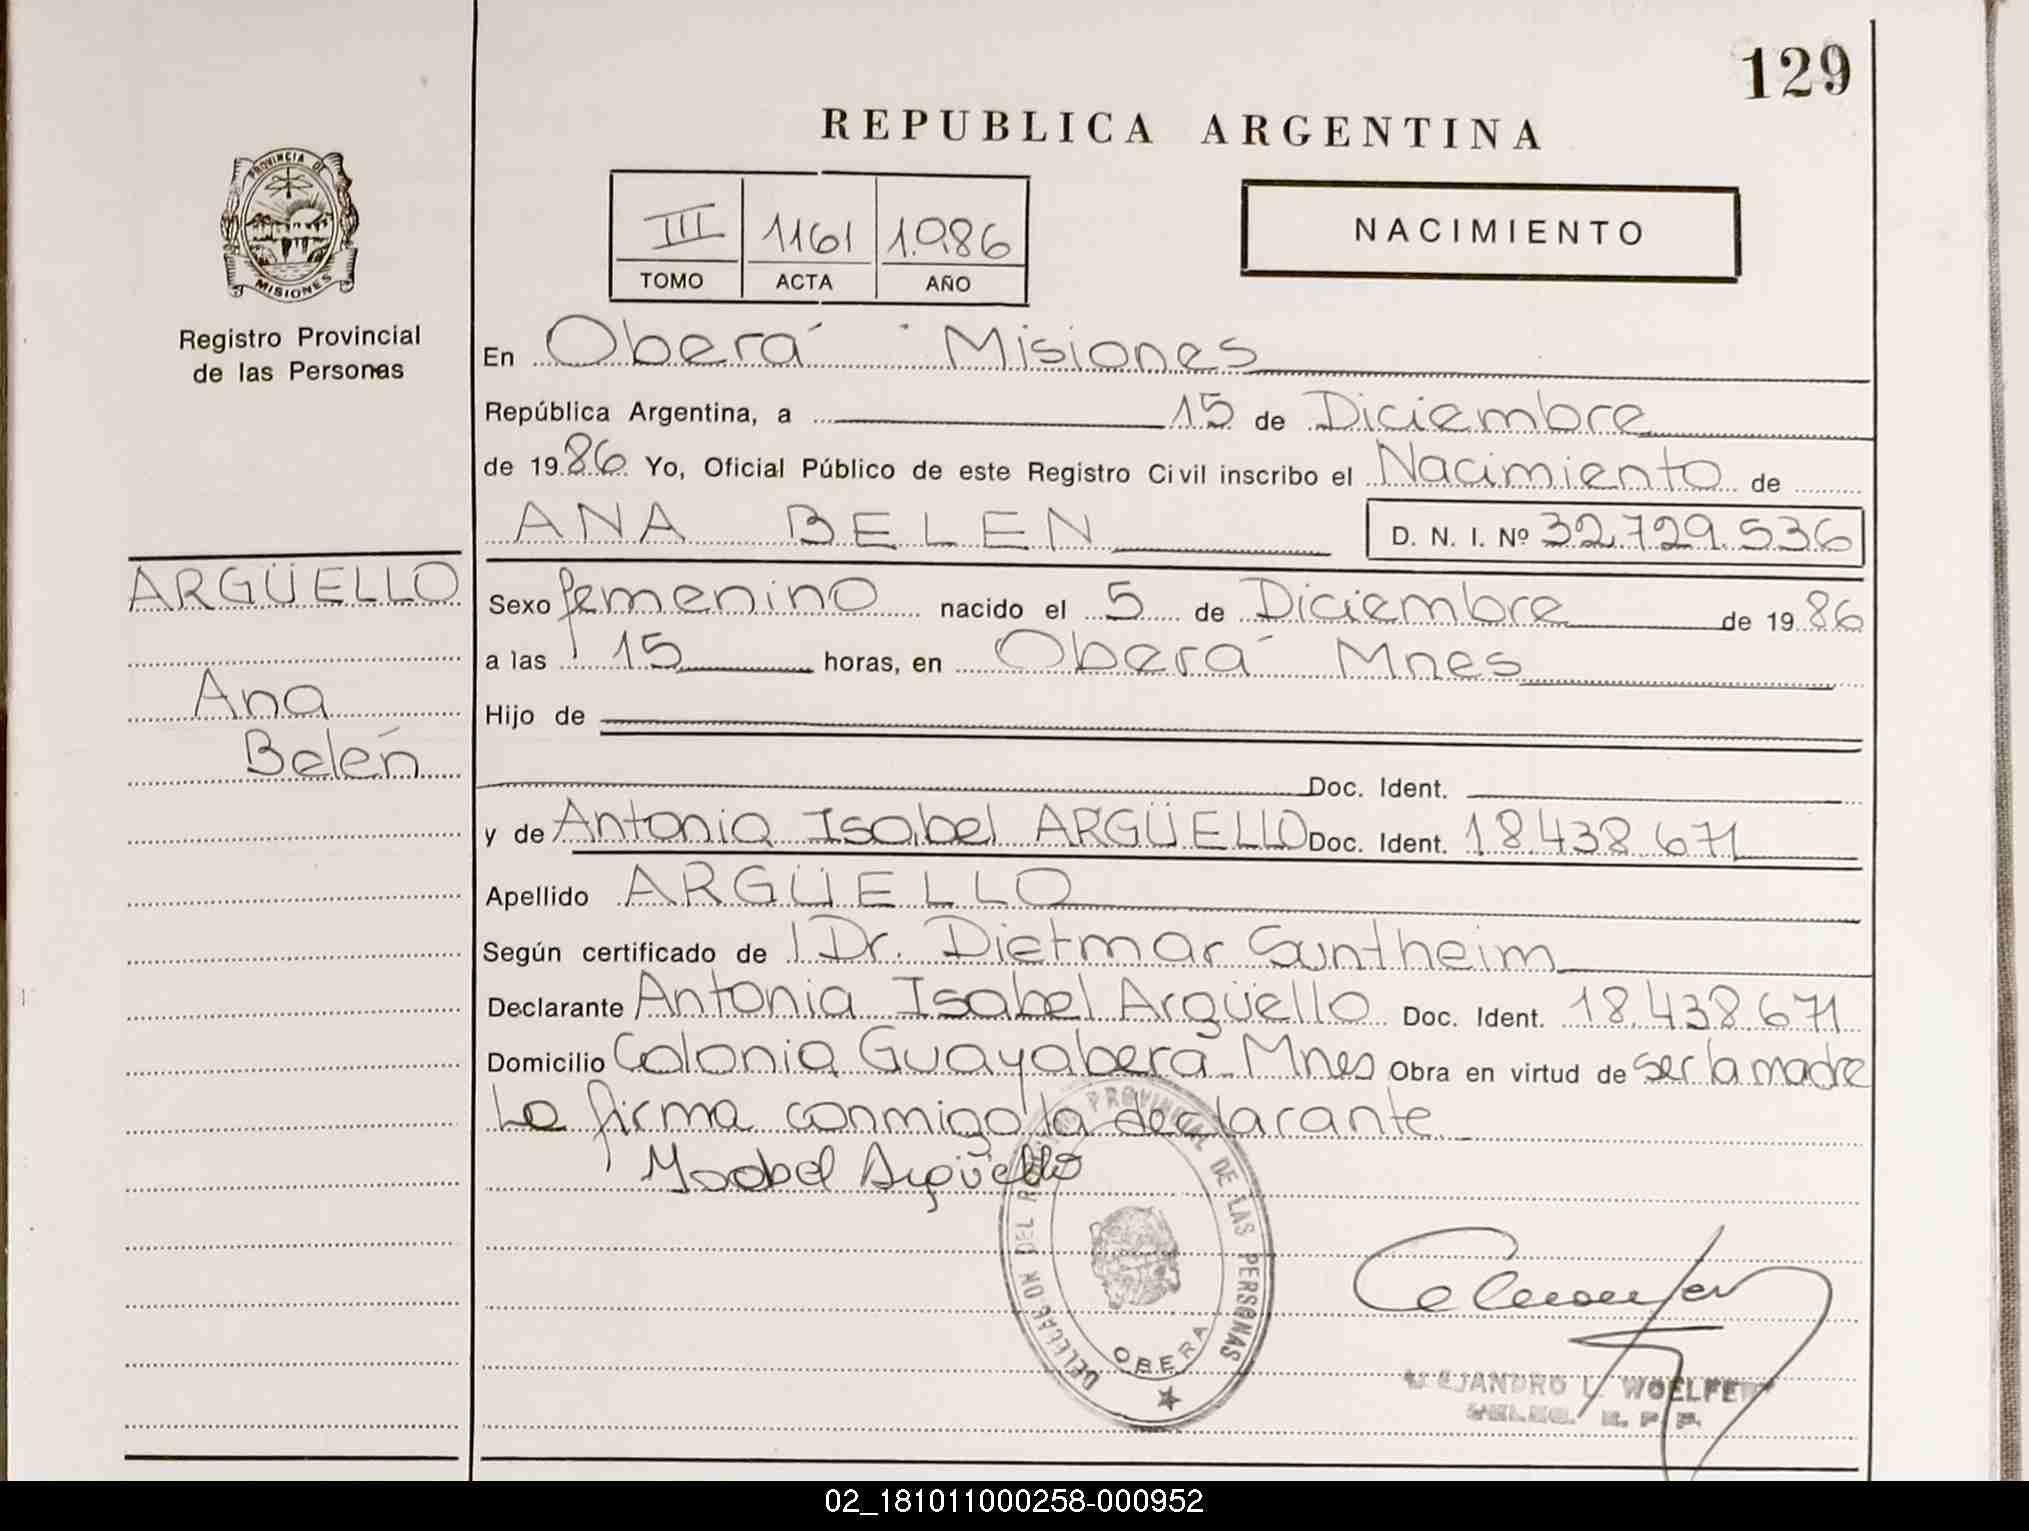 129
REPUBLICA ARGENTINA
PROVINCIA DE
MISIONES
Registro Provincial
de las Personas
III 1161 1.986
TOMO ACTA AÑO
NACIMIENTO
En Oberá Misiones
República Argentina, a 15 de Diciembre
de 1986 Yo, Oficial Público de este Registro Civil inscribo el Nacimiento de
ANA BELEN D. N. I. Nº 32.729.536
ARGÜELLO
Ana
Belén
Sexo femenino nacido el 5 de Diciembre de 1986
a las 15 horas, en Oberá Mnes
Hijo de
Doc. Ident.
y de Antonia Isabel ARGÜELLO Doc. Ident. 18.438.671
Apellido ARGÜELLO
Según certificado de l Dr. Dietmar Suntheim
Declarante Antonia Isabel Argüello Doc. Ident. 18.438.671
Domicilio Colonia Guayabera Mnes Obra en virtud de ser la madre
La firma conmigo la declarante
Ysabel Argüello
DELEGACION DEL REGISTRO PROVINCIAL DE LAS PERSONAS
OBERA
ALEJANDRO L. WOELFERT
DELEG. R. P. P.
02_181011000258-000952